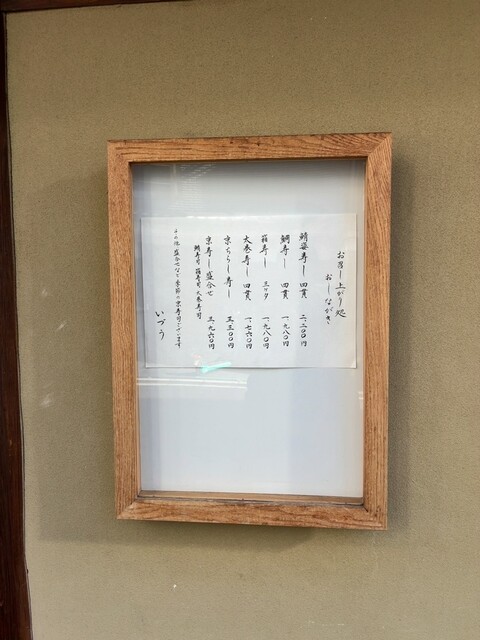 お召し上がり処
おしながき
鯖姿寿し 四貫 二、二〇〇円
鯛寿し 四貫 一、九八〇円
箱寿し 三ヶ 一、九八〇円
大巻寿し 四貫 一、七六〇円
京ちらし寿し 三、三〇〇円
京寿し盛合せ 三、九六〇円
鯛寿司 箱寿司 大巻寿司
その他、盛合せなど季節の京寿司ございます
いづう